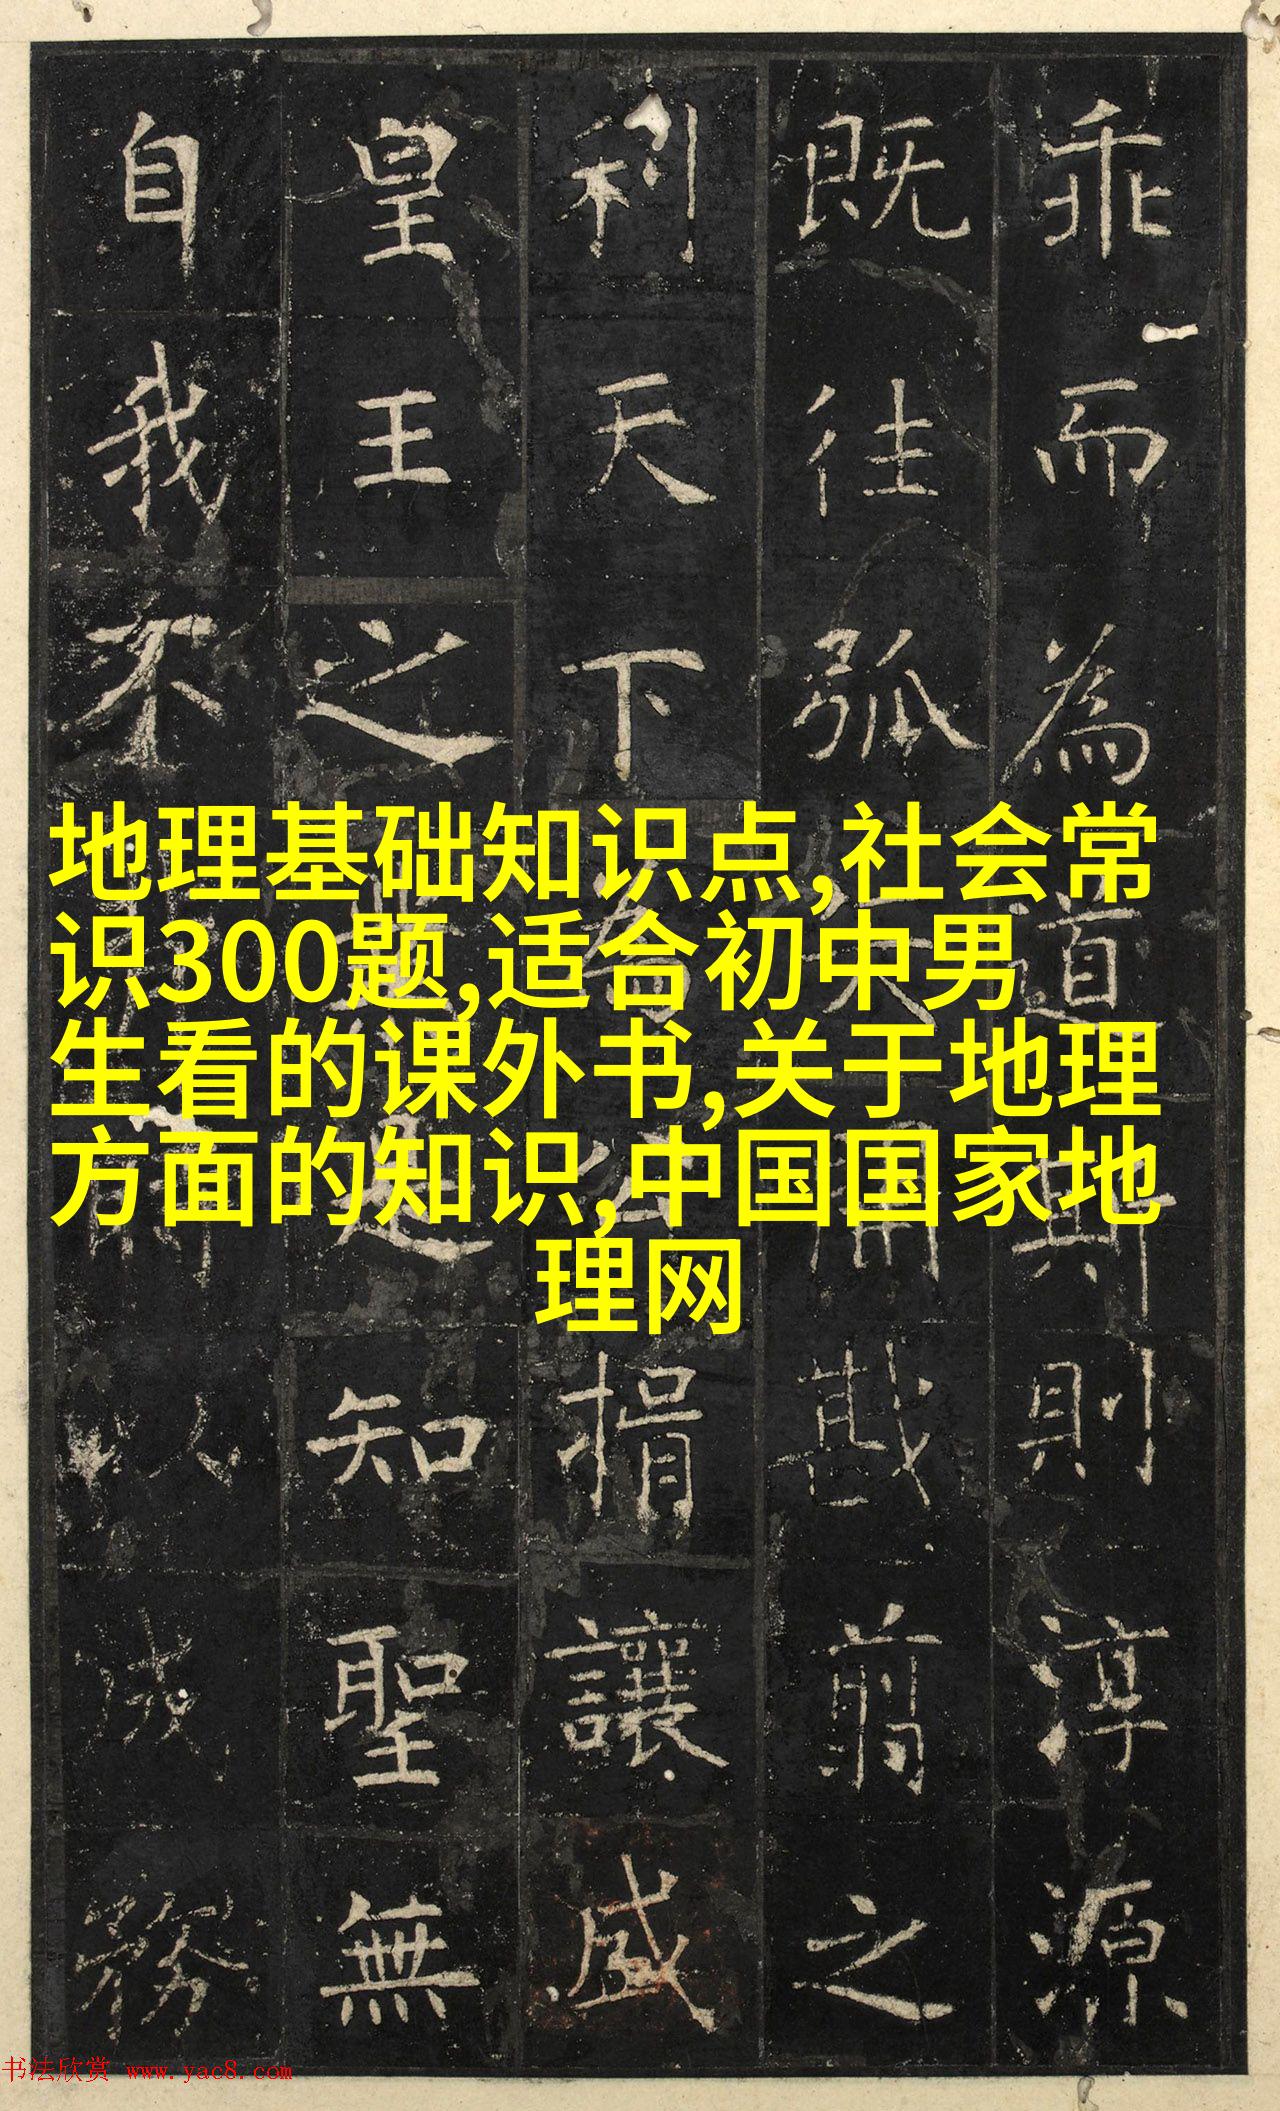 乖而為道斯則淳源
既往弧戡翦之
利天下捐讓咸
皇王之知聖無
自我不務
地理基础知识点,社会常
识300题,适合初中男
生看的课外书,关于地理
方面的知识,中国国家地
理网
书法欣赏 www.yac8.com